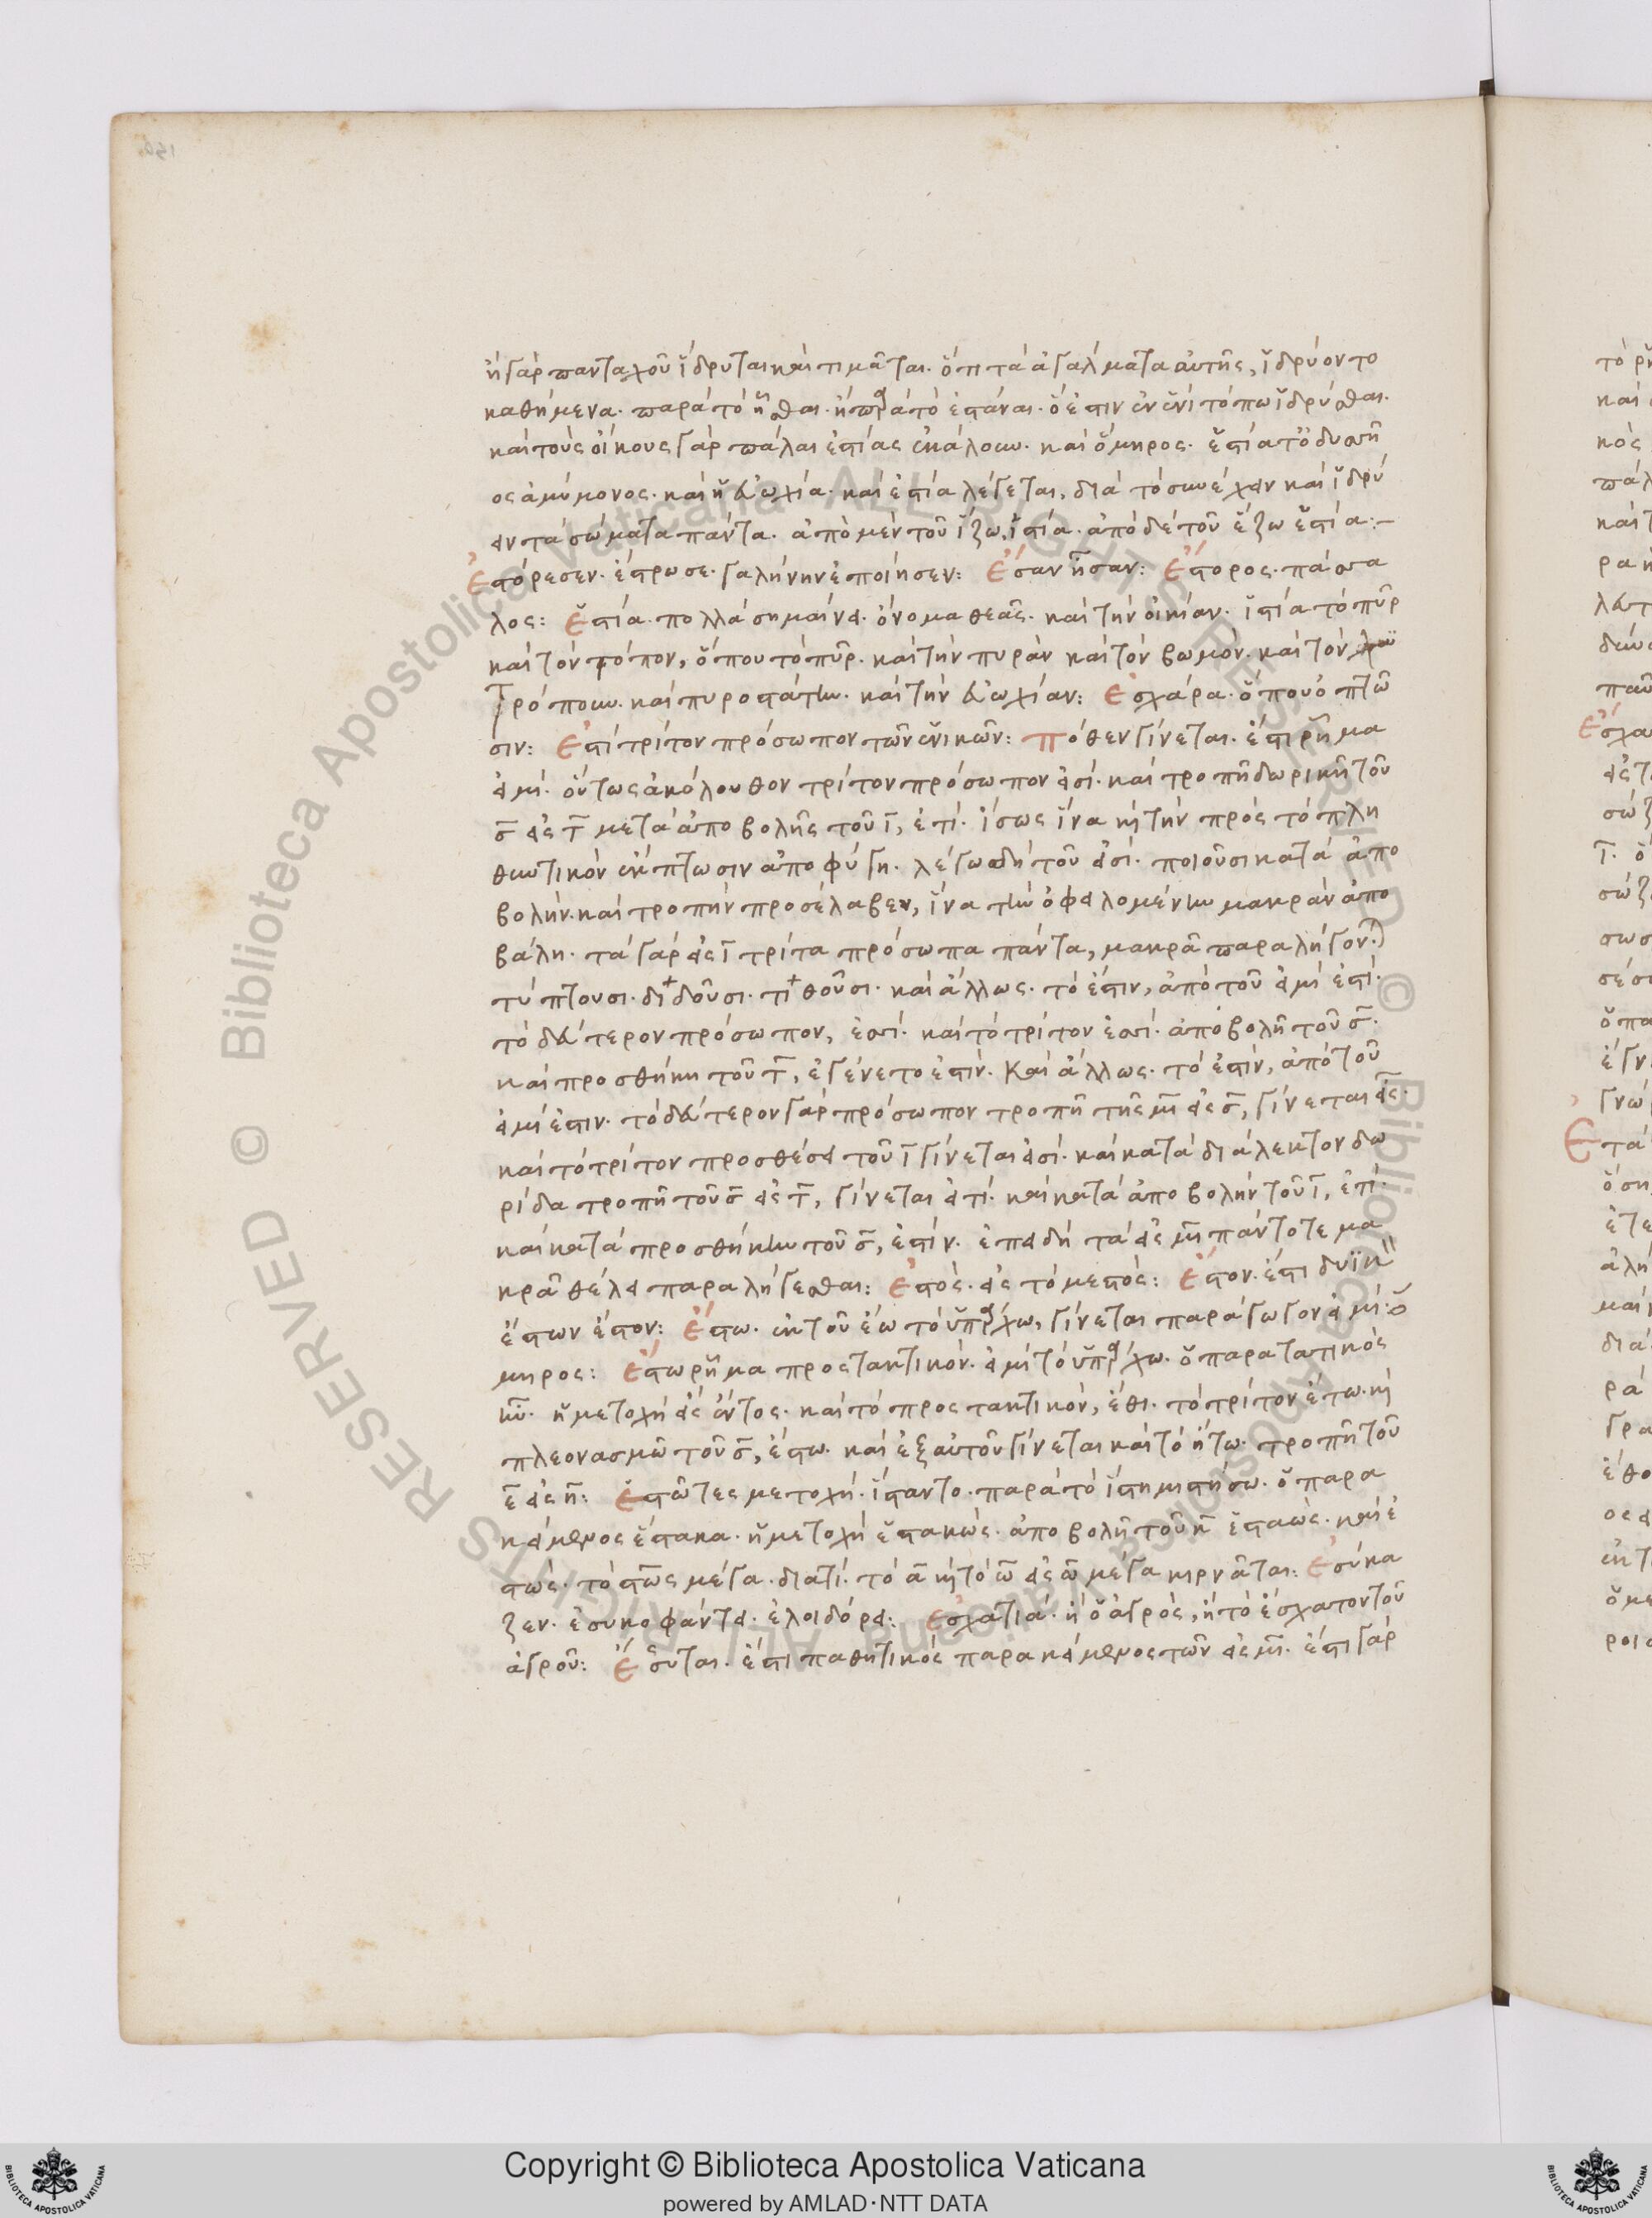 ἡ γὰρ πανταχοῦ ἵδρυται καὶ τιμᾶται. ὅτι τὰ ἀγάλματα αὐτῆς, ἱδρύοντο
καθήμενα. παρὰ τὸ ἧσθαι. ἢ παρὰ τὸ ἑστάναι. ὅ ἐστιν ἐν ἑνὶ τόπω ἱδρύσθαι.
καὶ τοὺς οἴκους γὰρ πάλαι ἑστίας ἐκάλουν. καὶ ὅμηρος. ἑστία τ' ὀδυσσῆ
ος ἀμύμονος. καὶ ἡ εὐωχία. καὶ ἑστία λέγεται, διὰ τὸ συνέχειν καὶ ἱδρύ
ειν τὰ σώματα πάντα. ἀπὸ μὲν τοῦ ἵζω, ἱστία. ἀπὸ δὲ τοῦ ἕζω ἑστία:–
Ἐστόρεσεν. ἔστρωσε. γαλήνην ἐποίησεν: Ἔσαν ἦσαν: Ἔστορος. πάσσα
λος: Ἑστία. πολλὰ σημαίνει. ὄνομα θεᾶς. καὶ τὴν οἰκίαν. ἱστία τὸ πῦρ
καὶ τὸν τόπον, ὅπου τὸ πῦρ. καὶ τὴν πυρὰν καὶ τὸν βωμόν. καὶ τὸν
τρόπουν. καὶ πυροστάτην. καὶ τὴν εὐωχίαν: Ἐσχάρα. ὅπου ὀπτῶ
σιν: Ἐστὶ τρίτον πρόσωπον τῶν ἑνικῶν: Πόθεν γίνεται. ἔστι ῥῆμα
εἰμί. οὗτως ἀκόλουθον τρίτον πρόσωπον εἰσί. καὶ τροπῆ δωρικῆ τοῦ
σ εἰς τ μετὰ ἀποβολῆς τοῦ ι, ἐτί. ἴσως ἵνα καὶ τὴν πρὸς τὸ πλη
θυντικὸν ἔκπτωσιν ἀποφύγη. λέγω δὴ τοῦ εἰσί. ποιοῦσι κατὰ ἀπο
βολήν. καὶ τροπὴν προσέλαβεν, ἵνα τὴν ὀφειλομένην μακρὰν ἀπο
βάλη. τὰ γὰρ εἰς ι τρίτα πρόσωπα πάντα, μακρᾶ παραλήγονται
τύπτουσι. διδοῦσι. τιθοῦσι. καὶ ἄλλως. τὸ ἔστιν, ἀπὸ τοῦ εἰμί ἐστί.
τὸ δεύτερον πρόσωπον, ἐσσί. καὶ τὸ τρίτον ἐσσί. ἀποβολῆ τοῦ σ.
καὶ προσθήκη τοῦ τ, ἐγένετο ἐστίν. Καὶ ἄλλως. τὸ ἐστίν, ἀπὸ τοῦ
εἰμί ἐστιν. τὸ δεύτερον γὰρ πρόσωπον τροπῆ τῆς μι εἰς σ, γίνεται εἶς.
καὶ τὸ τρίτον προσθέσει τοῦ ι γίνεται εἰσί. καὶ κατὰ διάλεκτον δω
ρίδα τροπῆ τοῦ σ εἰς τ, γίνεται εἰτί. καὶ κατὰ ἀποβολὴν τοῦ ι, ἐτί.
καὶ κατὰ προσθήκην τοῦ σ, ἐστίν. ἐπειδὴ τὰ εἰς μι πάντοτε μα
κρᾶ θέλει παραλήγεσθαι: Ἐστός. εἰς τὸ μεστός: Ἔστον. ἔστι δυϊκ
ἔστων ἔστον: Ἔστω. ἐκ τοῦ ἔω τὸ ὑπάρχω, γίνεται παράγωγον εἰμί. ὅ
μηρος: Ἔστω ῥῆμα προστακτικόν. εἰμὶ τὸ ὑπάρχω. ὁ παρατατικὸς
ἦν. ἡ μετοχὴ εἲς ἔντος. καὶ τὸ προστακτικόν, ἔθι. τὸ τρίτον ἔτω. καὶ
πλεονασμῶ τοῦ σ, ἔστω. καὶ ἐξ αὐτοῦ γίνεται καὶ τὸ ἤτω. τροπῆ τοῦ
ε εἰς η: Ἑστῶτες μετοχή. ἵσταντο. παρὰ τὸ ἵστημι στήσω. ὁ παρα
κείμενος ἕστακα. ἡ μετοχὴ ἑστακώς. ἀποβολῆ τοῦ κ ἑσταώς. καὶ ἑ
στώς. τὸ στως μέγα. διατί. τὸ α καὶ τὸ ω εἰς ω μέγα κιρνᾶται: Ἐσύκα
ζεν. ἐσυκοφάντει. ἐλοιδόρει: Ἐσχατιά. ἢ ὁ ἀγρός, ἢ τὸ ἔσχατον τοῦ
ἀγροῦ: Ἔσσυται. ἔστι παθητικὸς παρακείμενος τῶν εἰς μι. ἔστι γὰρ
Copyright © Biblioteca Apostolica Vaticana
powered by AMLAD·NTT DATA